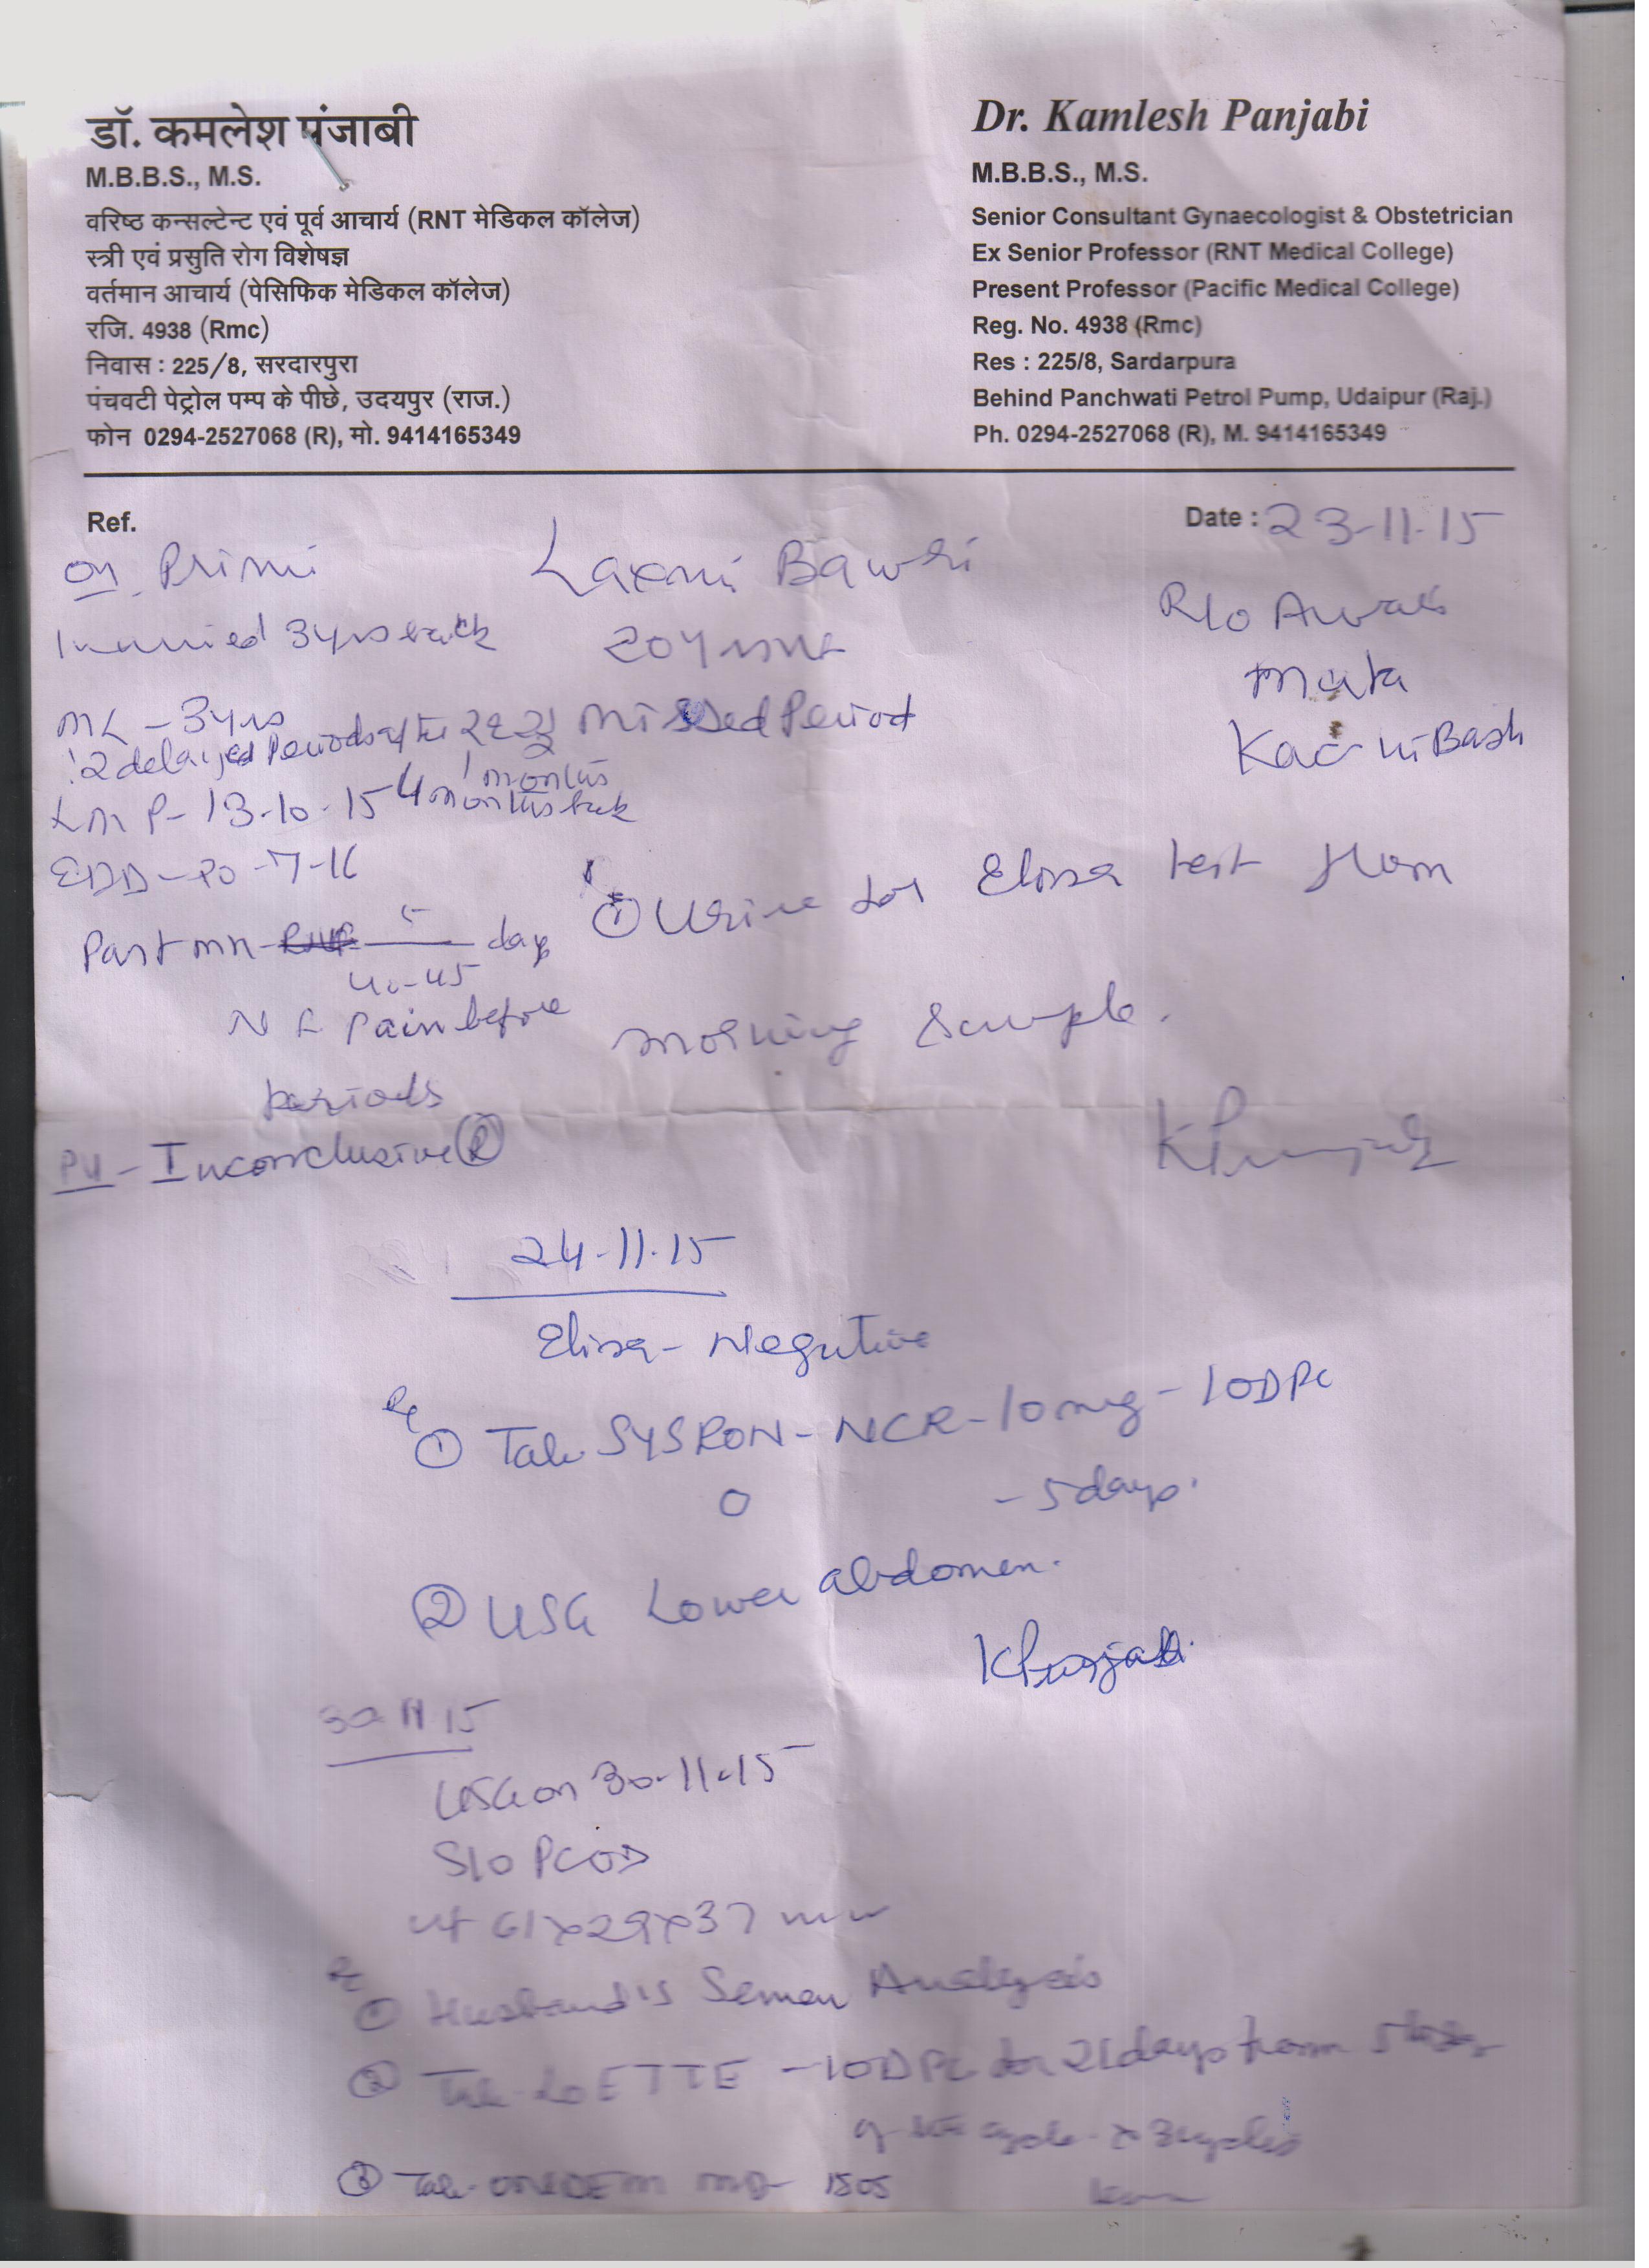 डॉ. कमलेश पंजाबी
M.B.B.S., M.S.
वरिष्ठ कन्सल्टेन्ट एवं पूर्व आचार्य (RNT मेडिकल कॉलेज)
स्त्री एवं प्रसुति रोग विशेषज्ञ
वर्तमान आचार्य (पेसिफिक मेडिकल कॉलेज)
रजि. 4938 (Rmc)
निवास : 225/8, सरदारपुरा
पंचवटी पेट्रोल पम्प के पीछे, उदयपुर (राज.)
फोन 0294-2527068 (R), मो. 9414165349
Dr. Kamlesh Panjabi
M.B.B.S., M.S.
Senior Consultant Gynaecologist & Obstetrician
Ex Senior Professor (RNT Medical College)
Present Professor (Pacific Medical College)
Reg. No. 4938 (Rmc)
Res : 225/8, Sardarpura
Behind Panchwati Petrol Pump, Udaipur (Raj.)
Ph. 0294-2527068 (R), M. 9414165349
Ref.
Date : 23-11-15
Primi
Laxmi Bawri
R/o
married 3yrs back
20
Mata
ML - 3yrs
2 delayed Periods after Missed Period
months
LMP - 13-10-15 4 months back
EDD - 20-7-16
Past MH - 5 days
40-45
Pain before
periods
① Urine for Elisa test from
morning Sample.
PV - Inconclusive
24-11-15
Elisa - Negative
① Tab. SYSRON-NCR-10mg - 1 OD PC
- 5 days.
② USG Lower abdomen.
KPunjabi
30 11 15
USG on 30-11-15
S/o PCOD
ut 61x29x37 mm
① Husband's Semen Analysis
② Tab. LOETTE - 1 OD PC for 21 days from 5th day
of cycle x 3 cycles
③ Tab.